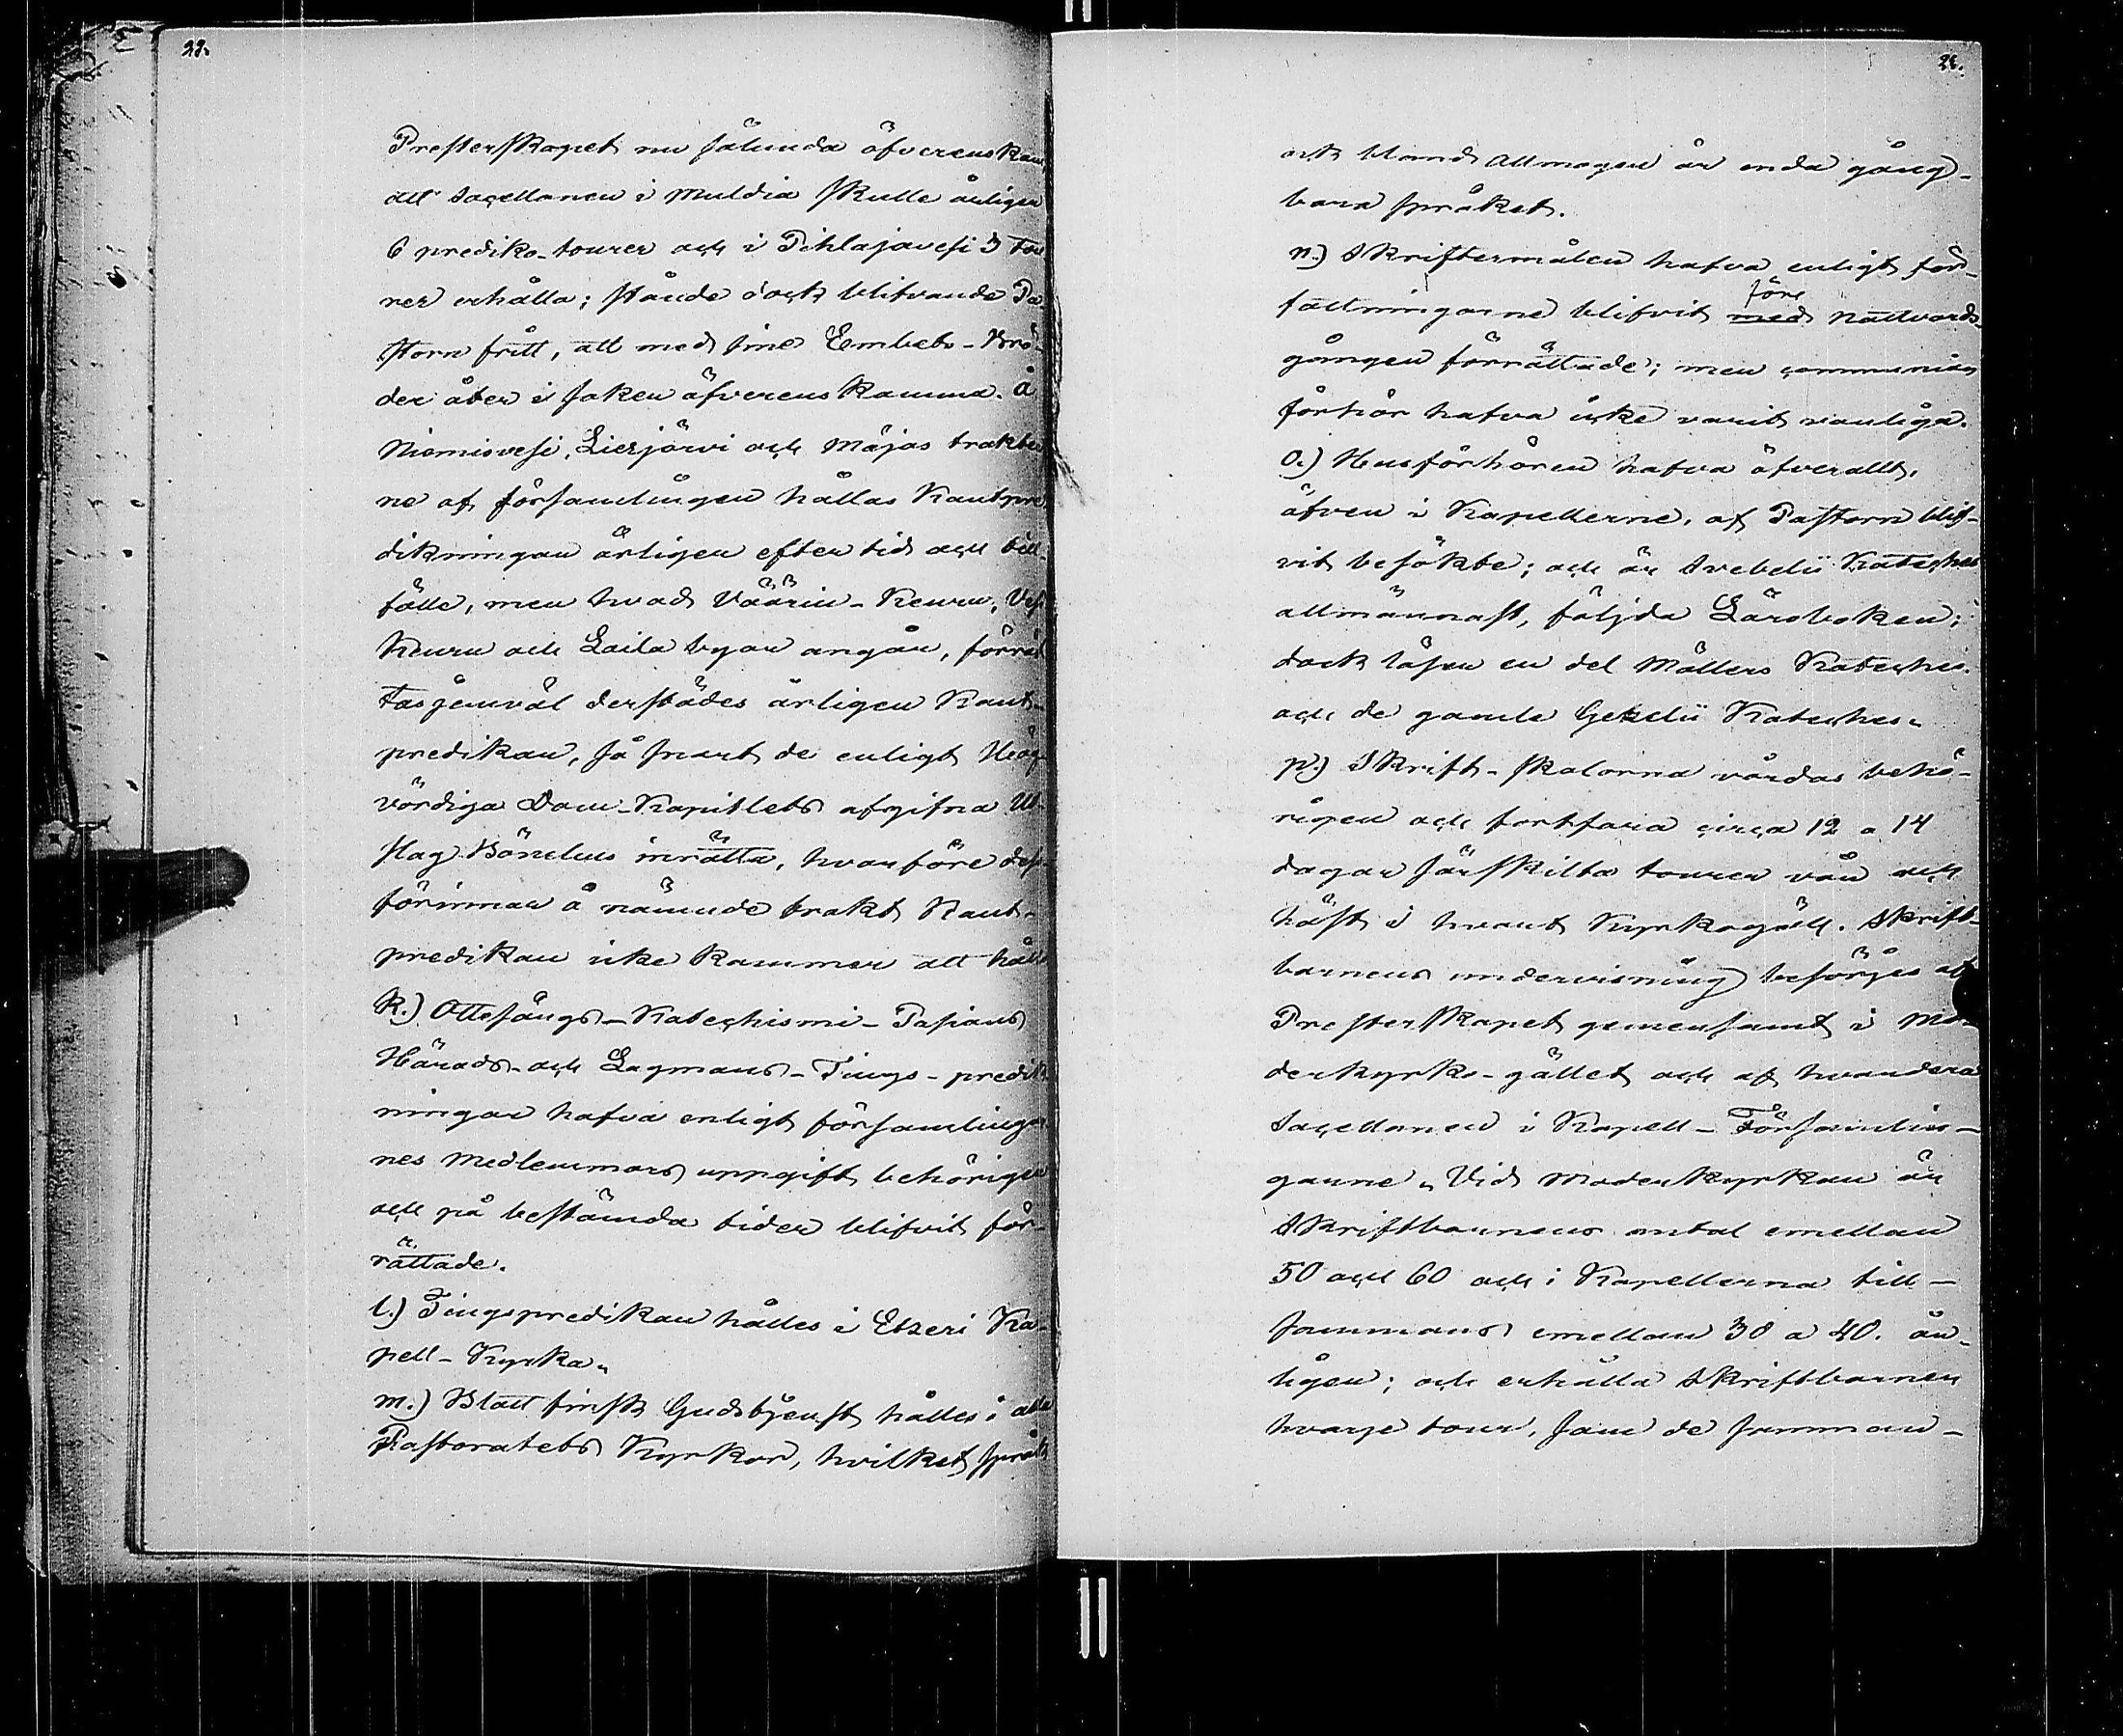 22.
Presterskapet nu sålunda öfverenskom,
att Sacellanen i Muldia skulle årligen
6 prediko-tourer och i Pihlajavesi 3 tou
rer erhålla; stånde dock blifvande Pa
storn fritt, att med sine Eembets-Brö-
der åter i saken öfverenskomma. Å
Niemisvesi, Lierjärvi och Mäjas trakter
ne af församlingen hållas Kautpre
dikningar årligen efter tid och till-
fälle, men hvad Väärin-Keuru, Vesi
Keuru och Laila byar angår, förrät
tas jemväl derstädes årligen Kaut-
predikan, så snart de enligt Hög
vördiga Dom-Kapitlets afgifna Ut-
slag Bönehus inrätta, hvarföre dess
förinnan å nämnde trakt Kaut-
predikan icke kommer att hålla
k.) Ottesångs-Katechismi-Passions
Härads- och Lagmans-Tings-predik
ningar hafva enligt församlingar
nes medlemmars uppgift behörigen
och på bestämda tider blifvit för-
rättade.
l.) Tingspredikan hålles i Etseri Ka-
pell-Kyrka.
m.) Blott finsk Gudstjenst hålles i alla
Pastoratets Kyrkor, hvilket språk
ock bland Allmogen är enda gång-
bara språket.
n.) Skriftermålen hafva enligt för-
fattningarne blifvit med före nattvards-
gången förrättade; men communion
förhör hafva icke varit vanliga.
o.) Husförhören hafva öfverallt,
äfven i Kapellerne, af Pastorn blif-
vit besökte; och är Svebelii Kateches
allmännast, följda Läroboken;
dock läsen en del Möllers Kateches
och de gamle Gezelii Kateches.
p.) Skrift-skolorna vårdas behö-
rigen och fortfara circa 12 a 14
dagar särskilta tourer vår och
höst i hvart Kyrkogäll. Skrift-
barnens undervisning besörjes af
Presterskapet gemensamt i Mo-
derkyrko-gället och af hvardera
Sacellanen i Kapell-Församlin-
garne. Vid Moderkyrkan är
Skriftbarnens antal emellan
50 och 60 och i Kapellerna till-
sammans emellan 30 a 40. år-
ligen; och erhålla Skriftbarnen
hvarje tour, som de samman-